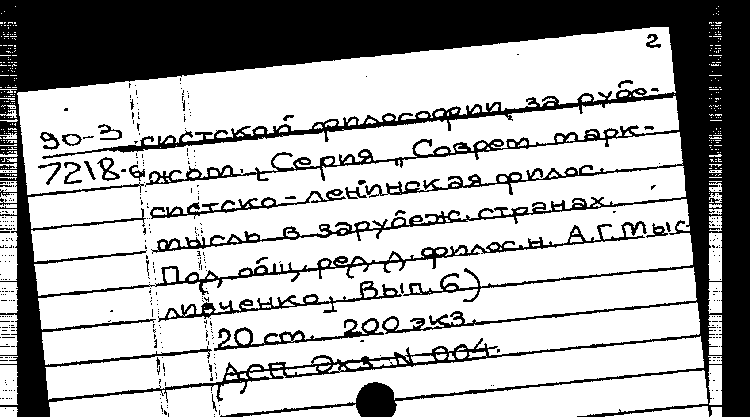 2
90-3 систской философии, за рубе-
7218-6 жом. [Серия „Соврем. марк-
систско-ленинская филос.
мысль в зарубеж. странах.
Под общ. ред. д. филос. н. А.Г. Мыс
ливченко]. Вып. 6)
20 ст. 200 экз.
ДСП. Экз. N 004.